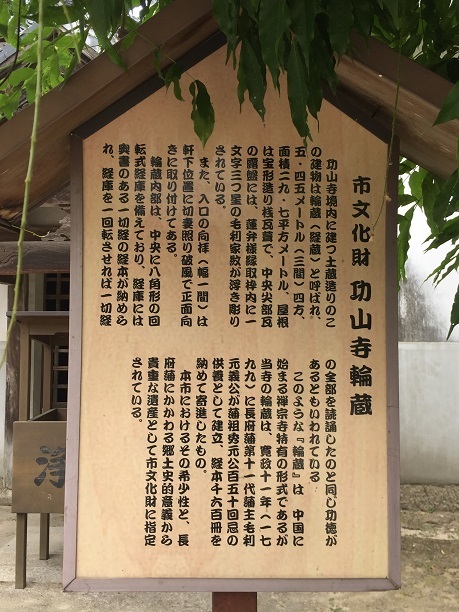 市文化財 功山寺輪蔵
功山寺境内に建つ土蔵造りのこ
の建物は輪蔵（経蔵）と呼ばれ、
五・四五メートル（三間）四方、
面積二九・七平方メートル、屋根
は宝形造り桟瓦葺で、中央尖部瓦
の露盤には、蓮弁様縁取枠内に一
文字三つ星の毛利家紋が浮き彫り
されている。
また、入口の向拝（幅一間）は
軒下位置に切妻照り破風で正面向
きに取り付けてある。
輪蔵内部は、中央に八角形の回
転式経庫を備えており、経庫には
奥書のある一切経の経本が納めら
れ、経庫を一回転させれば一切経
の全部を読誦したのと同じ功徳が
あるともいわれている
このような『輪蔵』は、中国に
始まる禅宗寺特有の形式であるが
当寺の輪蔵は、寛政十一年（一七
九九）に長府藩第十一代藩主毛利
元義公が藩祖秀元公百五十回忌の
供養として建立、経本千六百冊を
納めて寄進したもの。
本市におけるその希少性と、長
府藩にかかわる郷土史的意義から
貴重な遺産として市文化財に指定
されている。
浄